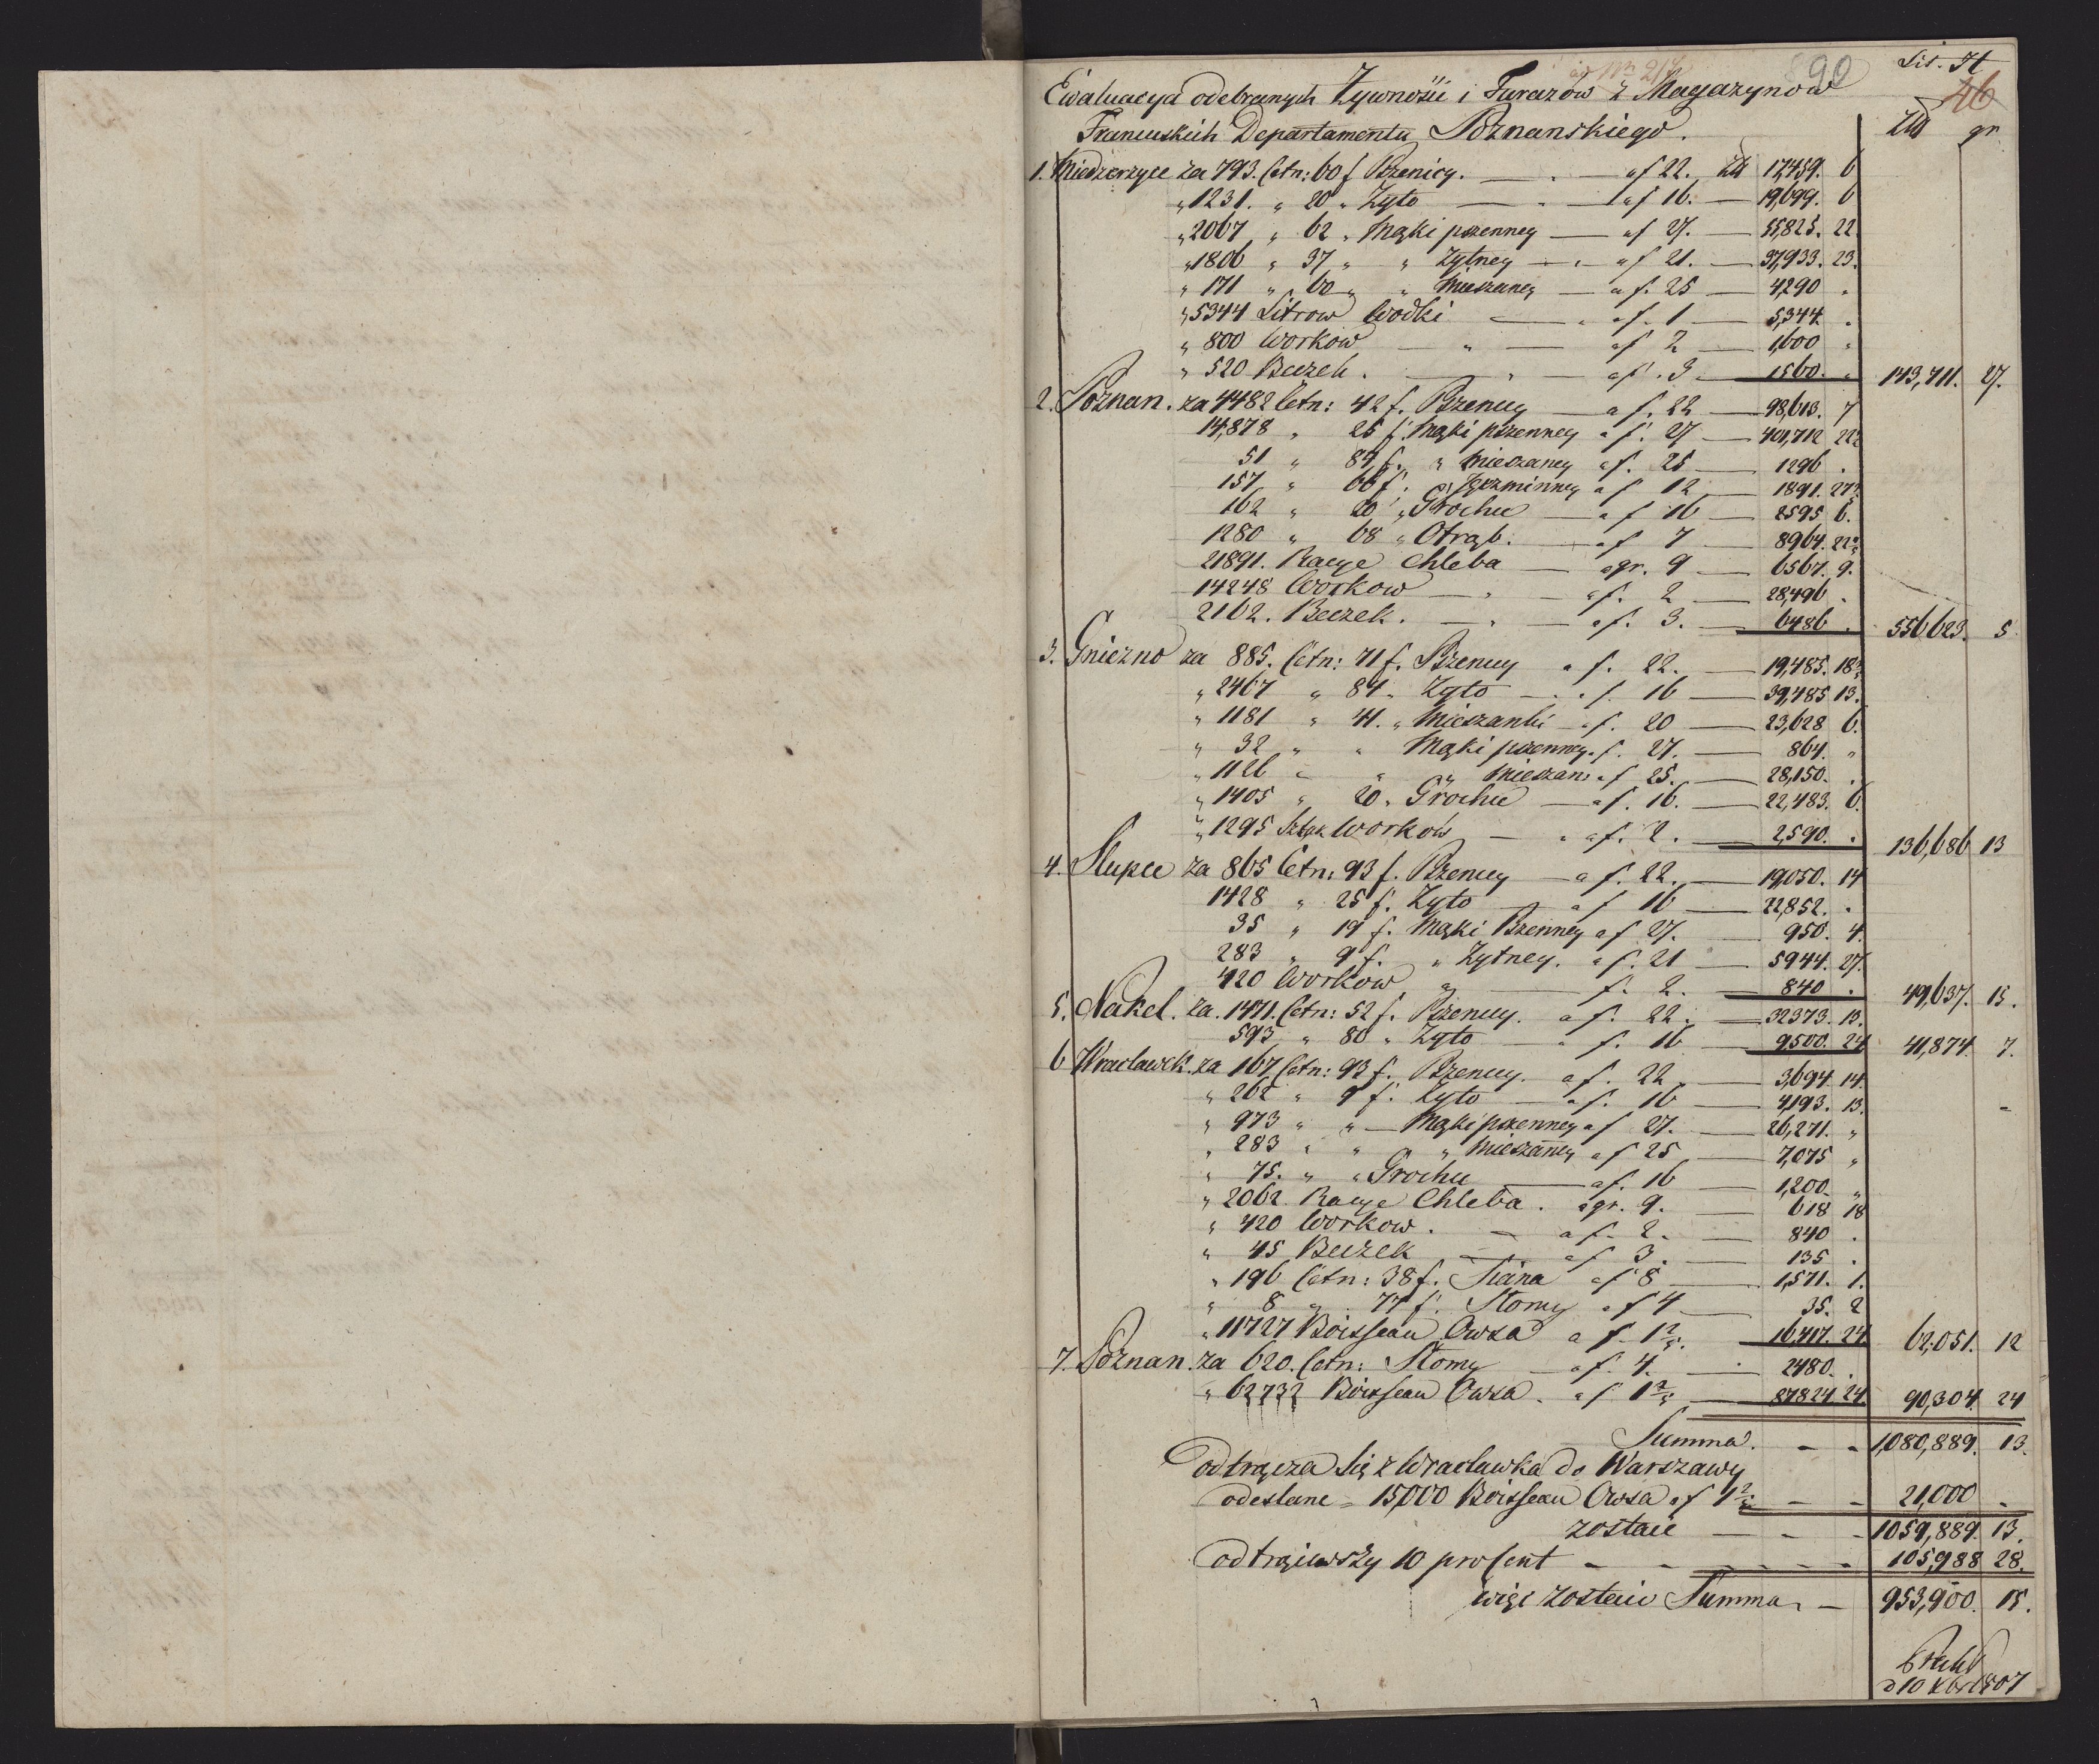 Lit. H
90
46
Ewaluacya odebranych Zywnosci i Furazow z Magazynow
Francuskich Departamentu Poznanskiego.
Zł gr
1. Miedzerzyce za 793. Cetn: 60 f Przenicy. — a f 22. Zł 17,459. 6
" 1231. " 20 " Zyto — a f 16. — 19,699. 6
" 2067 " 62 " Mąki pszenney — a f 27. — 55,825. 22
" 1806 " 37 " " Zytney — a f 21. — 37,933. 23.
" 171 " 60 " " Mieszaney — a f. 25 — 4,290 "
" 5344 Litrow Wodki — a f. 1 — 5,344 .
" 800 Workow — " — a f 2 — 1,600 "
" 520 Beczek. — " — a f. 3 — 1560. " 143,711. 27.
2. Poznan. za 4482 Cetn: 42 f. Przenicy — a f. 22 — 98,613. 7
14,878 " 25 f. Mąki pszenney a f. 27 — 401,712 22
51 " 84 f. " Mieszaney a f. 25 — 1296 .
157 " 66 f. " Jęczminney a f 12 — 1891. 27
162 " 20 " Grochu — a f 16 — 2595 6.
1280 " 68 " Otrąb. — a f 7 — 8964. 22
21891. Racye Chleba — a gr. 9 — 6567. 9.
14248 Workow — " — a f. 2 — 28,496 .
2162. Beczek. — " — a f. 3. — 6486 . 556623. 5
3. Gniezno za 885. Cetn: 71 f. Przenicy a f. 22. — 19,485. 18
" 2467 " 84 " Zyto — a f. 16 — 39,485 13.
" 1181 " 41. " Mieszanki a f. 20 — 23,628 6.
" 32 " " Mąki pszenney a f. 27. — 864. "
" 1126 " " " Mieszan: a f 25. — 28,150. .
" 1405 " 20 " Grochu — a f. 16. — 22,483. 6.
" 1295 Sztuk Workow — a f. 2. — 2,590. . 136,686 13
4. Slupce za 865 Cetn: 93 f. Przenicy — a f. 22. — 19,050. 14
1428 " 25 f. Zyto — a f 16 — 22,852. .
35 " 19 f. Mąki Przenney a f 27. — 950. 4.
283 " 9 f. " Zytney. a f. 21 — 5944. 27.
420 Workow " — f. 2. — 840 . 49,637. 15.
5. Nakel. za. 1471. Cetn: 52 f. Przenicy. a f. 22. — 32373. 13.
593 " 80 " Zyto — a f. 16 — 9,500. 24 41,874. 7.
6 Wraclawek. za 167 Cetn: 93 f. Przenicy. a f. 22 — 3,694 14.
" 262 " 9 f. Zyto — a f. 16 — 4,193. 13.
" 973 " " — Mąki pszenney a f 27. — 26,271. "
" 283 " " " Mieszaney a f 25 — 7,075 "
" 75. " " Grochu — a f. 16 — 1,200 "
" 2062. Racye Chleba. a gr. 9. — 618 18
" 420 Workow. — a f. 2. — 840 .
" 45 Beczek — a f 3. — 135 .
" 196 Cetn: 38 f. Siana a f 8 — 1,571. 1.
" 8 " 77 f. Slomy a f 4 — 35. 2
" 11727 Boisseau Owsa a f 1 2/5. — 16,417. 24. 62,051. 12
7. Poznan. za 620. Cetn: Slomy — a f. 4. — 2480. .
" 62732 Boisseau Owsa. a f 1 2/5 — 87824 24. 90,304. 24
Summa. - - 1,080,889. 13.
odtrącza się z Wraclawka do Warszawy
odeslane = 15,000 Boisseau Owsa a f 1 2/5 - - 21,000 "
zostaie — - - 1059,889. 13.
odtrąciwszy 10 proCent - - - - 105,988 28.
więc zostaie Summa — 953,900. 15.
d 10 Xbr 1807